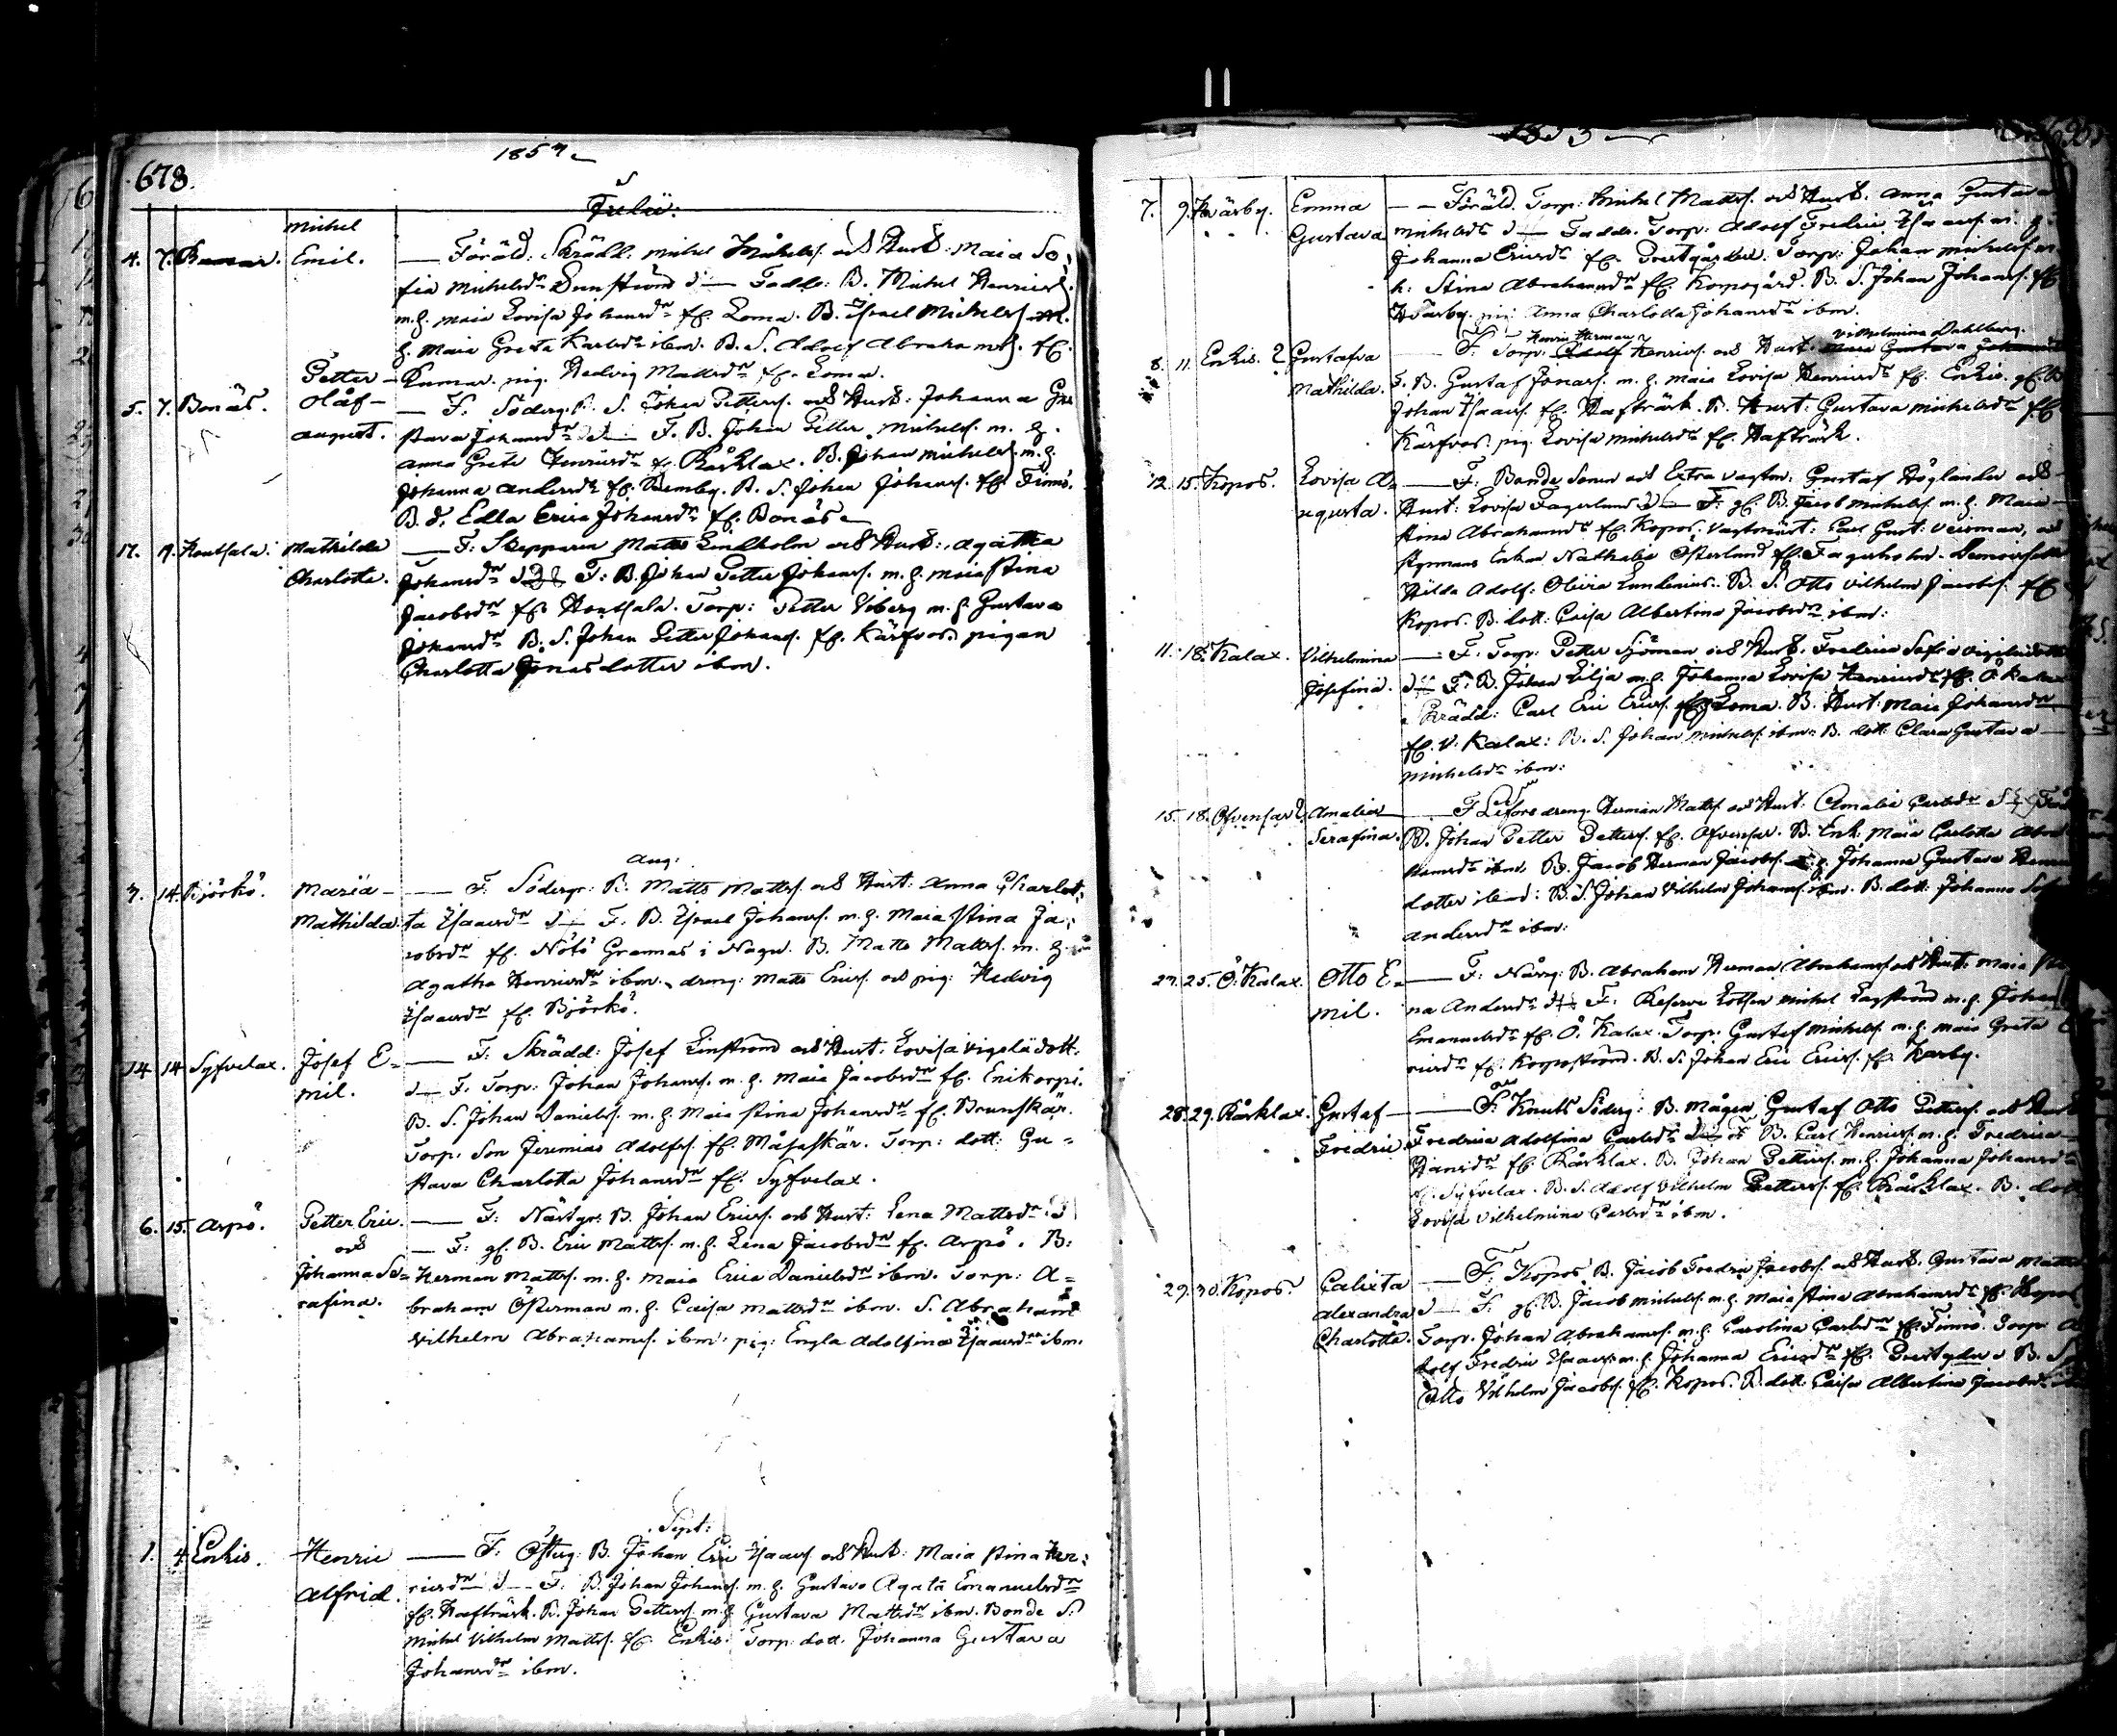 678.
185
Julii:
4. 7. Michel
Emil. — Föräld: Skrädd. Michel Michelss. och Hust: Maia So-
fia Michelsdr — Fadd: B. Michel Henricss.
m. h. Maia Lovisa Johansdr fr. Loma. B. Israel Michelss. m.
h. Maia Greta Karlsdr ibm. B. S. Adolf Abrahamss. fr.
Rumar. pig. Hedvig Mattsdr fr. Loma.
5. 7. Bonäs. Petter
Olåf
August. — F: Söderg. B. S. Johan Petterss. och Hust: Johanna Gu
stava Johansdr — F. B. Johan Petter Michelss. m. h.
Anna Greta Henricsdr fr. Råcklax. B. Johan Michelss. m. h.
Johanna Andersdr fr. Remby. B. S. Johan Johanss. fr. Finnö.
B. d. Edla Erica Johansdr fr. Bonäs
17. 19. Houtsala. Mathilda
Charlotta. — F: Skepparen Matts Lindholm och Hust: Agatha
Johansdr F: B. Johan Petter Johanss. m. h. Maia Stina
Jacobsdr fr. Houtsala. Torp: Petter Viberg m. h. Gustava
Johansdr B. S. Johan Petter Johanss. fr. Kärfvos. pigan
Charlotta Jonasdotter ibm.
Aug:
7. 14. Björkö. Maria
Mathilda. — F. Söderg: B: Matts Mattss. och Hust: Anna Charlot-
ta Isaacsdr — F. B. Israel Johanss. m. h. Maia Stina Ja-
cobsdr fr. Nötö Grannas i Nagu. B. Matts Mattss. m. h.
Agatha Henricsdr ibm. dreng: Matts Ericss. och pig: Hedvig
Isaacsdr fr. Björkö.
14. 14. Syfvelax. Josef E-
mil. — F: Skrädd: Josef Linström och Hust: Lovisa Vigeliidott.
— F. Torp: Johan Johanss. m. h. Maia Jacobsdr fr. Enikorpi.
B. S. Johan Danielss. m. h. Maia Stina Johansdr fr. Brunskär.
Torp. Son Jeremias Adolfss. fr. Måsaskär. Torp: dott: Gu-
stava Charlotta Johansdr fr. Syfvelax.
6. 15. Arpö. Petter Eric.
och
Johanna Se-
rafina. — F: Nästgr: B. Johan Ericss. och Hust: Lena Mattsdr
— F: gl. B. Eric Mattss. m. h. Lena Jacobsdr fr. Arpö. B:
Herman Mattss. m. h. Maia Erica Danielsdr ibm. Torp: A-
braham Österman m. h. Caisa Mattsdr ibm. S. Abraham
Vilhelm Abrahamss. ibm. pig: Engla Adolfina Isaacsdr ibm.
Sept:
1. 4. Enkis. Henric
Alfrid. — F: Österg: B. Johan Eric Isaacss. och Hust: Maia Stina Hen-
ricsdr — F: B. Johan Johanss. m. h. Gustava Agata Emanuelsdr
fr. Hafträsk. B. Johan Petterss. m. h. Gustava Mattsdr ibm. Bonde S.
Michel Vilhelm Mattss. fr. Enkis. Torp. dott. Johanna Gustava
Johansdr ibm.
7. 9. Kvärby. Emma
Gustava — Föräld. Torp: Michel Mattss. och Hust. Anna Gustava
Michelsdr — Fadd. Torp. Adolf Fredric Isaacss. m. h.
Johanna Ericsdr fr. Prestgården. Torp: Johan Michelss. m.
h. Stina Abrahamsdr fr. Korpogård. B. S. Johan Johanss. fr.
Kvärby. pig: Anna Charlotta Johansdr ibm.
8. 11. Enkis. Gustafva
Mathilda. Henric Herman Vilhelmina Dahlberg.
— F. Torp: Adolf Henricss. och Hust. Maia Gustava
F. B. Gustaf Jonass. m. h. Maia Lovisa Henricsdr fr. Enkis. gl. B
Johan Isaacss. fr. Hafträsk. B. Hust: Gustava Michelsdr fr.
Kärfvos. pig. Lovisa Michelsdr fr. Hafträsk.
12. 15. Kopos. Lovisa A-
ugusta. — F: Bonde Sonen och Extra Vaktm: Gustaf Höglander och
Hust: Lovisa Fagerlund — F: gl. B. Jacob Michelss. m. h. Maia
Stina Abrahamsdr fr. Kopos. Carl Gust:
Styrmans Enkan Nathalia Österlund fr. Fagerholm.
Hilda Adolf: Olivia Lundenius. B. S. Otto Vilhelm Jacobss. fr.
Kopos. B. dott: Caisa Albertina Jacobsdr ibm:
11. 18. Kalax. Vilhelmina
Josefina. — F. Torp: Petter Sjöman och Hust. Fredrica Sofia
F: B. Johan Lilja m. h. Johanna Lovisa Henricsdr fr. Ö. Kalax
Skrädd: Carl Eric Ericss. fr. Loma. B. Hust: Maia Johansdr
fr. V. Kalax: B. S. Johan Michelss. ibm. B. dott: Clara Gustava
Michelsdr ibm:
15. 18. Ofvensar. Amalia
Serafina. — F. dreng Herman Mattss. och Hust. Amalia Carlsdr
B. Johan Petter Petterss. fr. Ofvensar. B. Enk: Maia Carlotta Abra
hamsdr ibm. B. Jacob Herman Jacobss. m. h. Johanna Gustava
dotter ibm: B. S. Johan Vilhelm Johanss. ibm. B. dott: Johanna
Andersdr ibm:
25. Ö. Kalax. Otto E-
mil. — F: Norrg: B. Abraham Herman Abrahamss. och Hust: Maia Sti
na Andersdr F: Reserve Lotsen Michel Engström m. h. Johan
Emanuelsdr fr. Ö. Kalax. Torp: Gustaf Michelss. m. h. Maia Greta
ricsdr fr. Korpoström. B. S. Johan Eric Ericss. fr. Karby.
28. 29. Råcklax. Gustaf
Fredric. — F: Knuts Söderg: B. Mågen Gustaf Otto Petterss. och Hust
Fredrica Adolfina Carlsdr B. Carl Henricss. m. h. Fredrica
Hansdr fr. Råcklax. B. Johan Petterss. m. h. Johanna Johansdr
fr. Syfvelax. B. S. Adolf Vilhelm Petterss. fr. Råcklax. B. dott
Lovisa Vilhelmina Carlsdr ibm.
29. 30. Kopos. Calixta
Alexandra
Charlotta. — F: Kopos B. Jacob Fredric Jacobss. och Hust. Gustava Matts
— F: gl. B. Jacob Michelss. m. h. Maia Stina Abrahamsdr fr. Kopos
Torp. Johan Abrahamss. m. h. Carolina Carlsdr fr. Finnö. Torp: A
dolf Fredric Isaacss. m. h. Johanna Ericsdr fr. B. S.
Otto Vilhelm Jacobss. fr. Kopos. B. dott: Caisa Albertina Jacobsdr